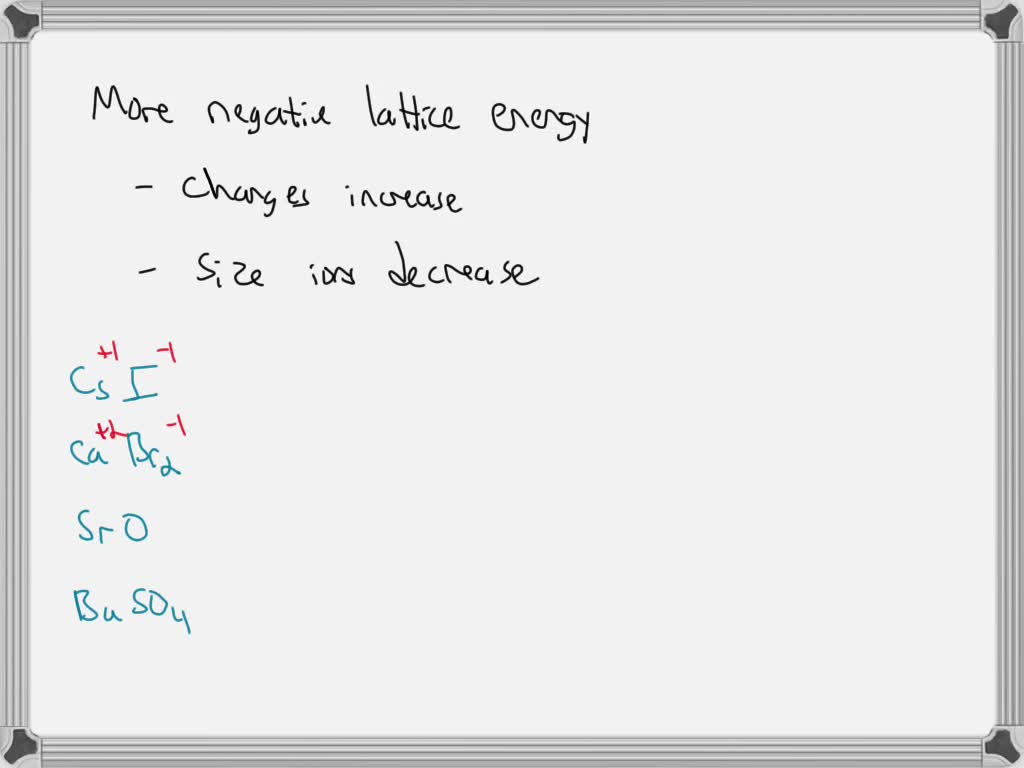 More negative lattice energy
- charges increase
- Size ions decrease
+1 -1
Cs I
+2 -1
Ca Br2
Sr O
Ba SO4